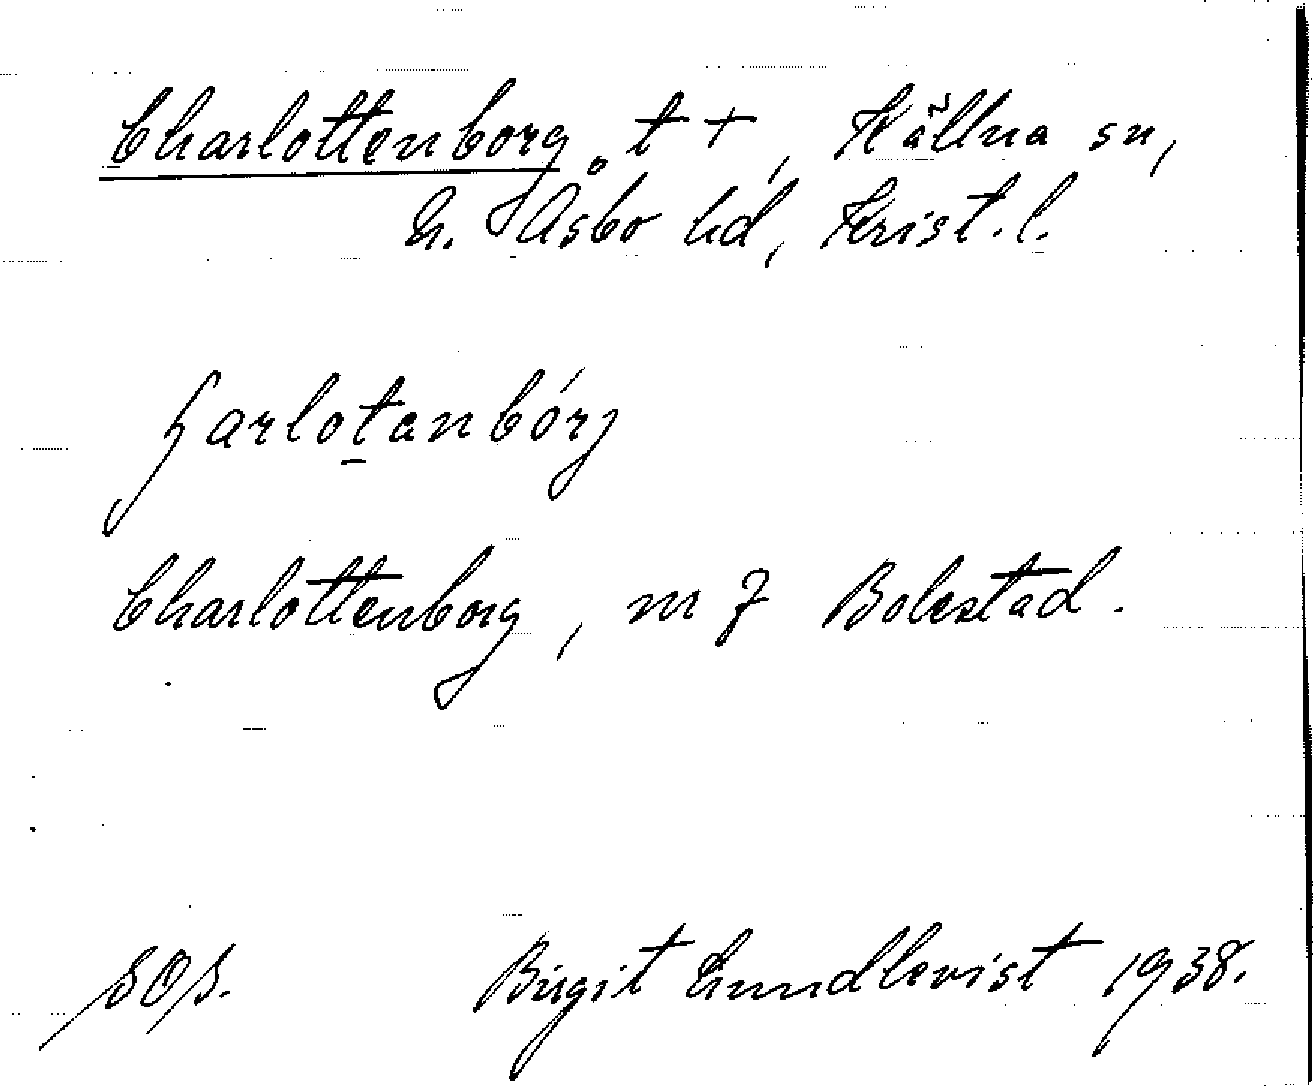 Charlottenborg, t +, Källna sn,
N. Åsbo hd, Krist. l.
ʃarlotanbórj
Charlottenborg, nr 7 Bolestad.
SOS. Birgit Lundkvist 1938.